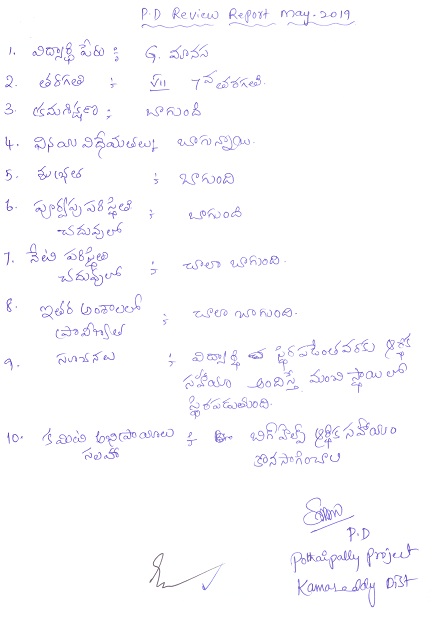 P.D Review Report May-2019
1. విద్యార్థి పేరు : G. మానస
2. తరగతి : VII 7వ తరగతి.
3. క్రమశిక్షణ : బాగుంది
4. వినయ విధేయతలు : బాగున్నాయి.
5. శుభ్రత : బాగుంది
6. పూర్వపు పరిస్థితి : బాగుంది
చదువులో
7. నేటి పరిస్థితి : చాలా బాగుంది.
చదువులో
8. ఇతర అంశాలలో : చాలా బాగుంది.
ప్రావీణ్యత
9. సూచనలు : విద్యార్థి స్థిరపడేంతవరకు ఆర్థిక
సహాయం అందిస్తే మంచి స్థాయిలో
స్థిరపడుతుంది.
10. కమిటి అభిప్రాయాలు : బిగ్ హెల్ప్ ఆర్థిక సహాయం
సలహా కొనసాగించాలి
P.D
Pothaipally Project
Kamareddy Dist